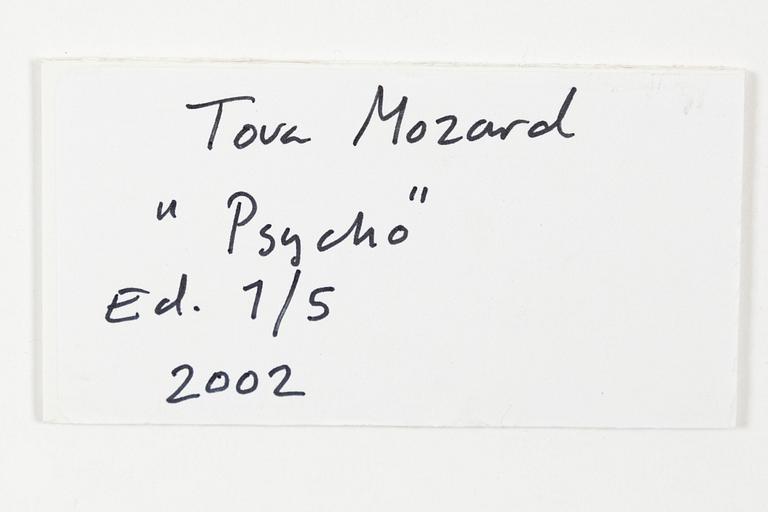 Tova Mozard
"Psycho"
Ed. 1/5
2002